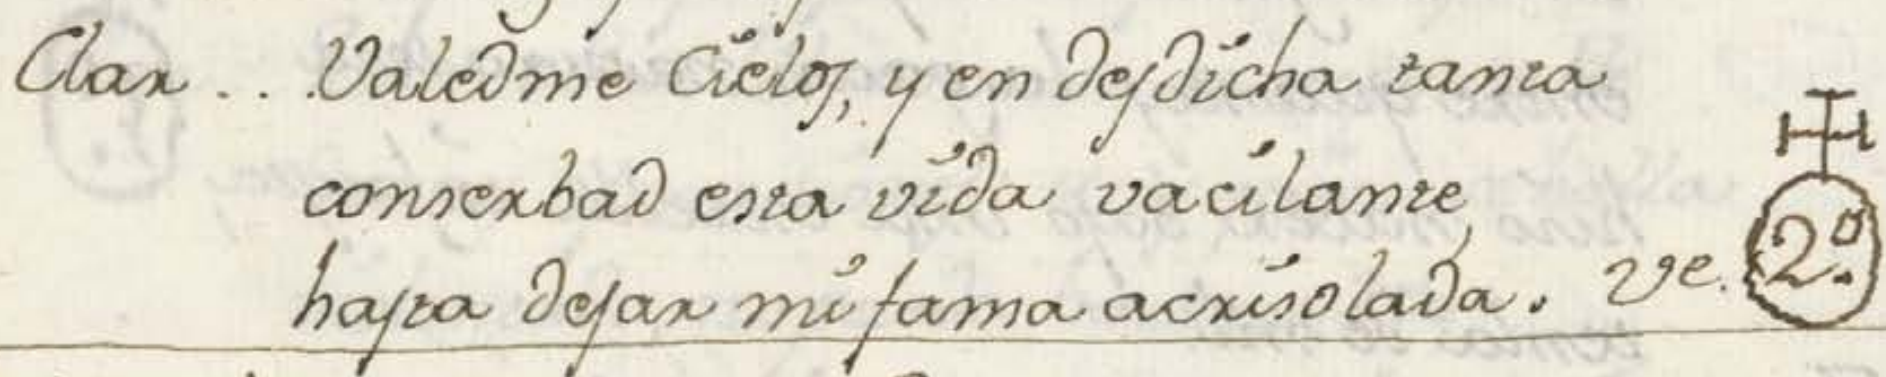 Clar... Valedme Cielos, y en desdicha tanta
conserbad esta vida vacilante
hasta dejar mi fama acrisolada. vse.
2.º